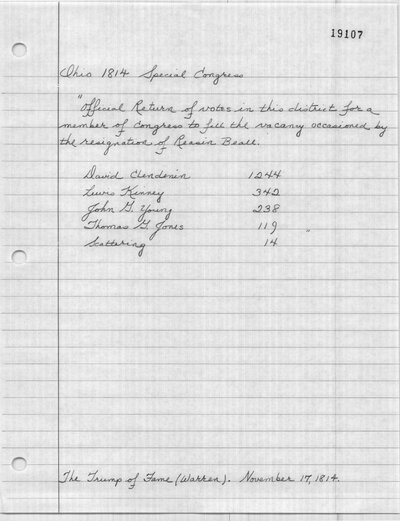 19107
Ohio 1814 Special Congress
"Official Return of votes in this district for a
member of Congress to fill the vacancy occasioned by
the resignation of Reasin Beall.
David Clendenin 1244
Lewis Kinney 342
John G. Young 238
Thomas G. Jones 119 "
Scattering 14
The Trump of Fame (Warren). November 17, 1814.